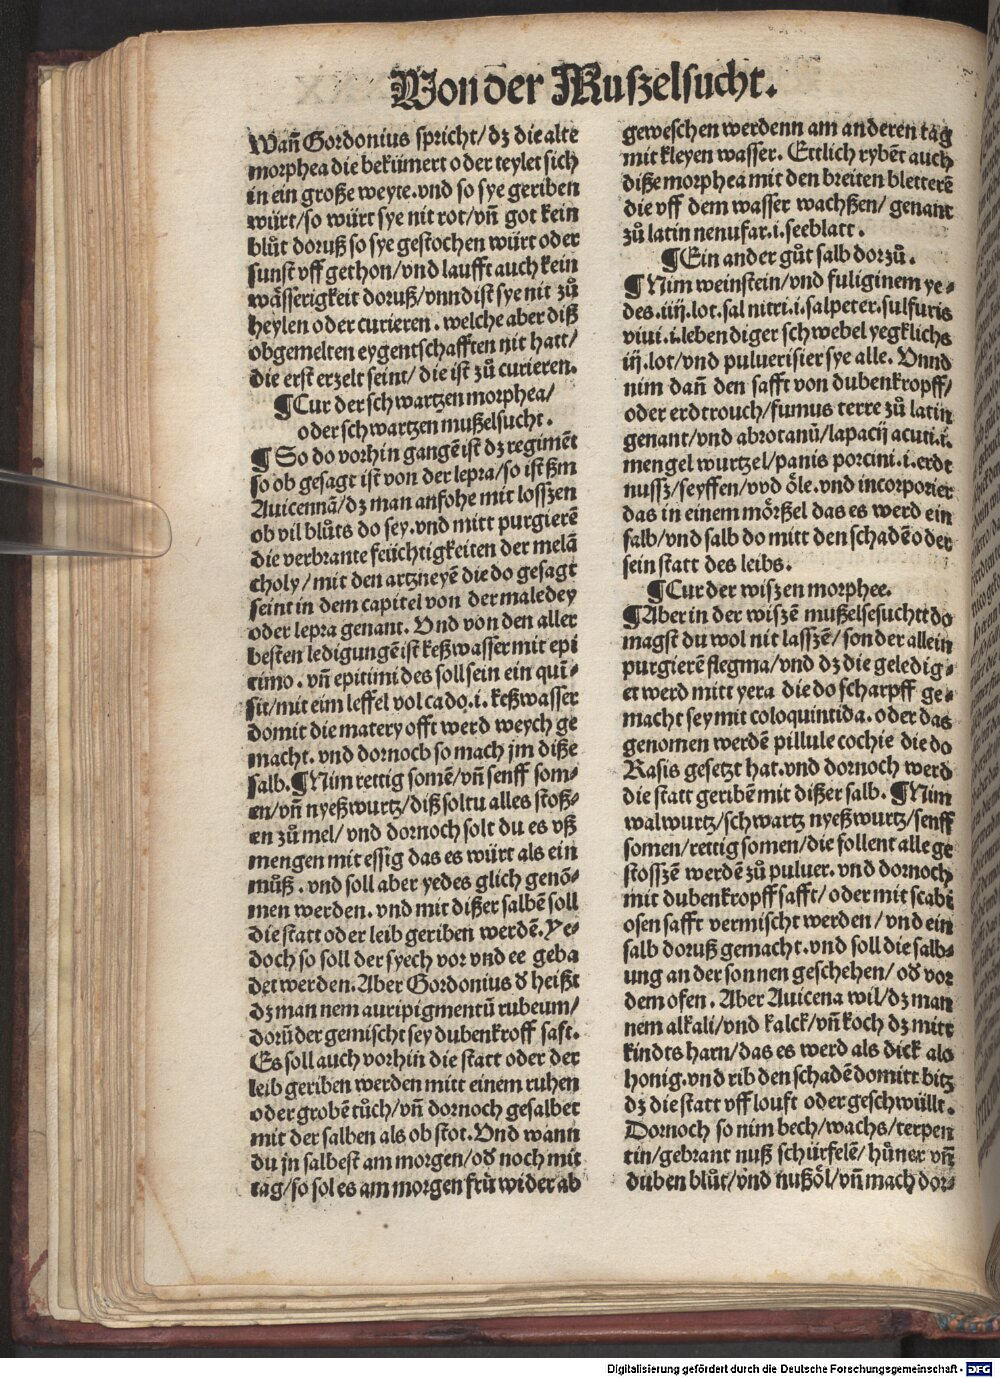 Von der Muszelsucht.
Wañ Gordonius spricht/dz die alte
morphea die bekümert oder teylet sich
in ein große weyte.vnd so sye geriben
würt/so würt sye nit rot/vñ got kein
blůt doruß so sye gestochen würt oder
sunst vff gethon/vnd laufft auch kein
wässerigkeit doruß/vnnd ist sye nit zů
heylen oder curieren. welche aber diß
obgemelten eygentschafften nit hatt/
die erst erzelt seint/die ist zů curieren.
¶Cur der schwartzen morphea/
oder schwartzen mußelsucht.
¶So do vorhin gangē ist dz regimēt
so ob gesagt ist von der lepra/so ist ßm
Auicennā/dz man anfohe mit losszen
ob vil blůts do sey.vnd mitt purgierē
die verbrante feüchtigkeiten der melā
choly/mit den artzneyē die do gesagt
seint in dem capitel von der maledey
oder lepra genant. Vnd von den aller
besten ledigungē ist keßwasser mit epi
timo. vñ epitimi des soll sein ein quī-
sit/mit eim leffel vol cado.i. keßwasser
domit die matery offt werd weych ge
macht. vnd dornoch so mach jm diße
salb.¶Nim rettig somē/vñ senff som-
en/vñ nyeßwurtz/diß soltu alles stoß-
en zů mel/vnd dornoch solt du es vß
mengen mit essig das es würt als ein
můß. vnd soll aber yedes glich genō-
men werden. vnd mit dißer salbē soll
die statt oder leib geriben werdē. Ye-
doch so soll der syech vor vnd ee geba
det werden. Aber Gordonius d heißt
dz man nem auripigmentū rubeum/
dorūder gemischt sey dubenkroff saft.
Es soll auch vorhin die statt oder der
leib geriben werden mitt einem ruhen
oder grobē tůch/vñ dornoch gesalbet
mit der salben als ob stot. Vnd wann
du jn salbest am morgen/od noch mit
tag/so sol es am morgen frů wider ab
geweschen werdenn am anderen tag
mit kleyen wasser. Ettlich rybēt auch
diße morphea mit den breiten bletterē
die vff dem wasser wachßen/genant
zů latin nenufar.i.seeblatt.
¶Ein ander gůt salb dorzů.
¶Nim weinstein/vnd fuliginem ye-
des.iiij.lot.sal nitri.i.salpeter.sulfuris
viui.i.lebendiger schwebel yegklichs
iij.lot/vnd puluerisier sye alle. Vnnd
nim dañ den safft von dubenkropff/
oder erdtrouch/fumus terre zů latin
genant/vnd abrotanū/lapacij acuti.i.
mengel wurtzel/panis porcini.i.erdt
nussz/seyffen/vvd öle.vnd incorporier
das in einem mörßel das es werd ein
salb/vnd salb do mitt den schadē oder
sein statt des leibs.
¶Cur der wiszen morphee.
¶Aber in der wiszē mußelsesuchtt do
magst du wol nit lasszē/sonder allein
purgierē flegma/vnd dz die geledig-
et werd mitt yera die do scharpff ge-
macht sey mit coloquintida.oder das
genomen werdē pillule cochie die do
Rasis gesetzt hat.vnd dornoch werd
die statt geribē mit dißer salb.¶Nim
walwurtz/schwartz nyeßwurtz/senff
somen/rettig somen/die sollent alle ge
stosszē werdē zů puluer.vnd dornoch
mit dubenkropff safft/oder mit scabi
osen safft vermischt werden/vnd ein
salb doruß gemacht.vnd soll die salb-
ung an der sonnen geschehen/od vor
dem ofen. Aber Auicena wil/dz man
nem alkali/vnd kalck/vñ koch dz mitt
kindts harn/das es werd als dick als
honig.vnd rib den schadē domitt bitz
dz die statt vff louft oder geschwüllt.
Dornoch so nim bech/wachs/terpen
tin/gebrant nuß schürfelē/hůner vñ
duben blůt/vnd nußöl/vñ mach dor-
Digitalisierung gefördert durch die Deutsche Forschungsgemeinschaft - DFG